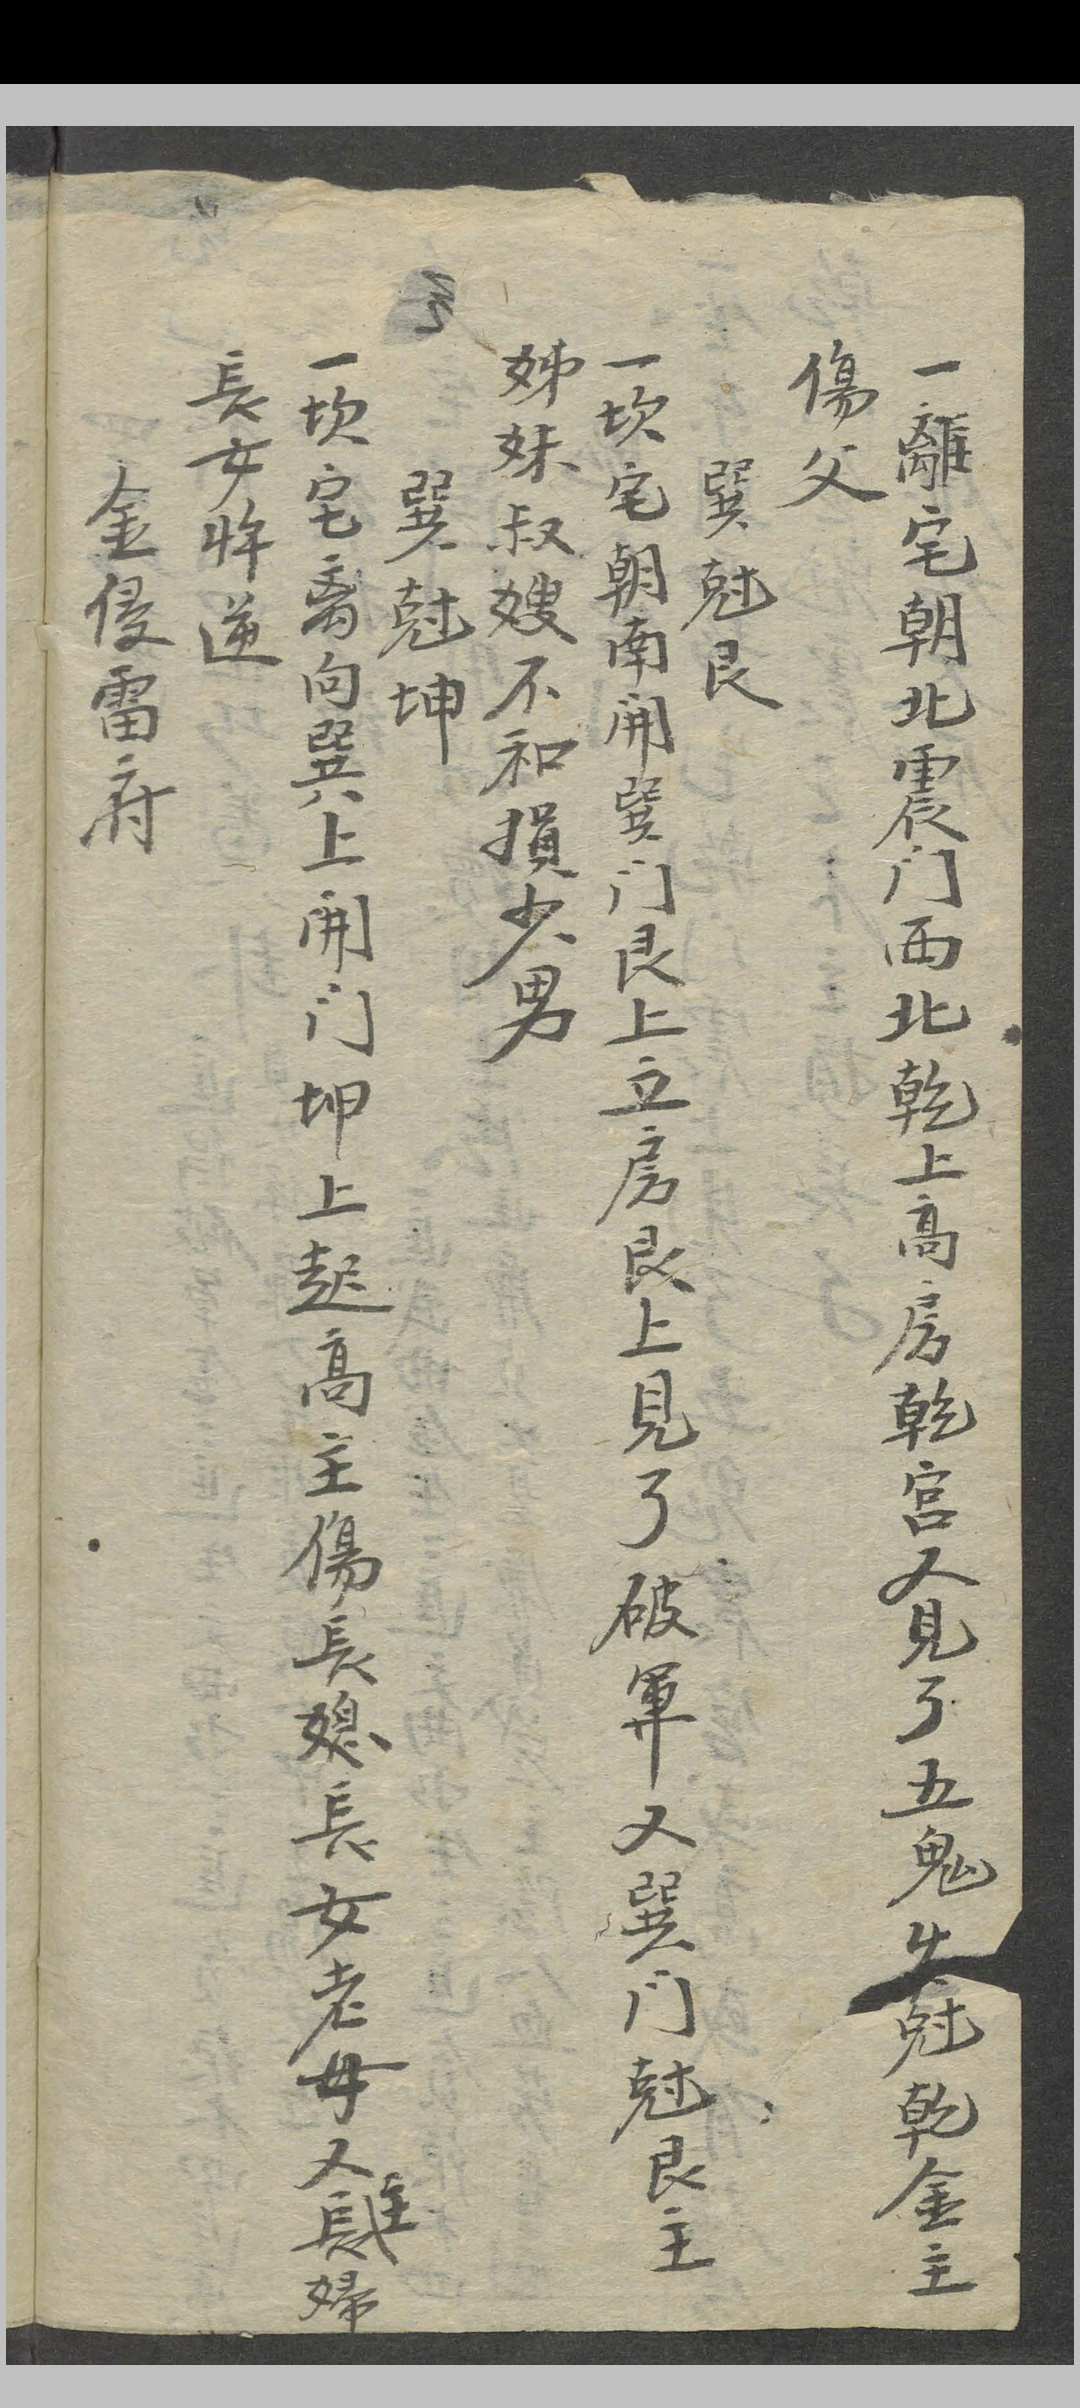 一離宅朝北震门西北乾上高房乾宫又見了五鬼尅乾金主
傷父
巽尅艮
一坎宅朝南開巽门艮上立房艮上見了破軍又巽门尅艮主
姊妹叔嫂不和損少男
巽尅坤
一坎宅离向巽上開门坤上起高主傷長媳長女老母又主長婦
長女忤逆
金侵雷府